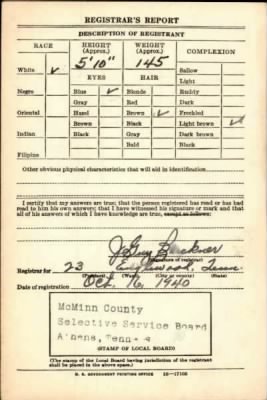 REGISTRAR'S REPORT
DESCRIPTION OF REGISTRANT
RACE HEIGHT (Approx.) WEIGHT (Approx.) COMPLEXION
5'10" 145
White ✓ Sallow
EYES HAIR Light
Negro Blue ✓ Blonde Ruddy
Gray Red Dark
Oriental Hazel Brown ✓ Freckled
Brown Black Light brown ✓
Indian Black Gray Dark brown
Bald Black
Filipino
Other obvious physical characteristics that will aid in identification
I certify that my answers are true; that the person registered has read or has had
read to him his own answers; that I have witnessed his signature or mark and that
all of his answers of which I have knowledge are true, except as follows:
(Signature of registrar)
Registrar for 23 Tenn.
(Precinct) (Ward) (City or county) (State)
Date of registration Oct. 16, 1940
McMinn County
Selective Service Board
Athens, Tenn
(STAMP OF LOCAL BOARD)
(The stamp of the Local Board having jurisdiction of the registrant
shall be placed in the above space.)
U. S. GOVERNMENT PRINTING OFFICE 16—17105